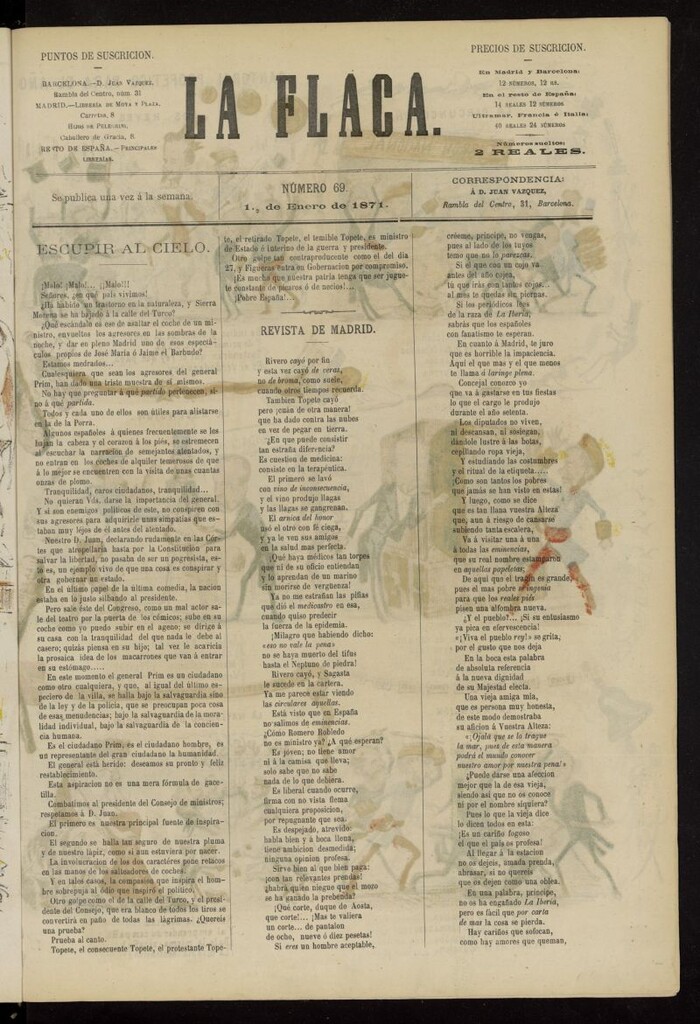 PUNTOS DE SUSCRICION.
BARCELONA.—D. JUAN VAZQUEZ,
Rambla del Centro, núm. 31
MADRID.—LIBRERÍA DE MOYA Y PLAZA,
Carretas, 8
HIJOS DE
Caballero de Gracia, 8.
RESTO DE ESPAÑA.—PRINCIPALES
LIBRERÍAS.
LA FLACA.
PRECIOS DE SUSCRICION.
En Madrid y Barcelona:
12 NÚMEROS, 12 RS.
En el resto de España:
14 REALES 12 NÚMEROS
Ultramar, Francia é Italia:
40 REALES 24 NÚMEROS
Números sueltos:
2 REALES.
Se publica una vez á la semana.
NÚMERO 69.
1.º de Enero de 1871.
CORRESPONDENCIA:
Á D. JUAN VAZQUEZ,
Rambla del Centro, 31, Barcelona.
ESCUPIR AL CIELO.
¡Malo! ¡Malo!... ¡¡Malo!!!
Señores, ¿en qué país vivimos!
¿Ha habido un trastorno en la naturaleza, y Sierra
Morena se ha bajado á la calle del Turco?
¿Qué escándalo es ese de asaltar el coche de un mi-
nistro, envueltos los agresores en las sombras de la
noche, y dar en pleno Madrid uno de esos espectá-
culos propios de José María ó Jaime el Barbudo?
Estamos medrados...
Cualesquiera que sean los agresores del general
Prim, han dado una triste muestra de sí mismos.
No hay que preguntar á qué partido pertenecen, si-
no á qué partida.
Todos y cada uno de ellos son útiles para alistarse
en la de la Porra.
Algunos españoles á quienes frecuentemente se les
bajan la cabeza y el corazon á los piés, se estremecen
al escuchar la narracion de semejantes atentados, y
no entran en los coches de alquiler temerosos de que
á lo mejor se encuentren con la visita de unas cuantas
onzas de plomo.
Tranquilidad, caros ciudadanos, tranquilidad...
No quieran Vds. darse la importancia del general.
Y si son enemigos políticos de este, no conspiren con
sus agresores para adquirirle unas simpatías que es-
taban muy léjos de él antes del atentado.
Nuestro D. Juan, declarando rudamente en las Cór-
tes que atropellaria hasta por la Constitucion para
salvar la libertad, no pasaba de ser un progresista, es-
to es, un ejemplo vivo de que una cosa es conspirar y
otra gobernar un estado.
En el último papel de la última comedia, la nacion
estaba en lo justo silbando al presidente.
Pero sale éste del Congreso, como un mal actor sa-
le del teatro por la puerta de los cómicos; sube en su
coche como yo puedo subir en el ageno; se dirige á
su casa con la tranquilidad del que nada le debe al
casero; quizás piensa en su hijo; tal vez le acaricia
la prosaica idea de los macarrones que van á entrar
en su estómago.....
En este momento el general Prim es un ciudadano
como otro cualquiera, y que, al igual del último espe-
ciero de la villa, se halla bajo la salvaguardia sino
de la ley y de la policía, que se preocupan poca cosa
de esas menudencias; bajo la salvaguardia de la mora-
lidad individual, bajo la salvaguardia de la concien-
cia humana.
Es el ciudadano Prim, es el ciudadano hombre, es
un representante del gran ciudadano la humanidad.
El general está herido: deseamos su pronto y feliz
restablecimiento.
Esta aspiracion no es una mera fórmula de gace-
tilla.
Combatimos al presidente del Consejo de ministros;
respetamos á D. Juan.
El primero es nuestra principal fuente de inspira-
cion.
El segundo se halla tan seguro de nuestra pluma
y de nuestro lápiz; como si aun estuviera por nacer.
La involucracion de los dos caractéres pone retacos
en las manos de los salteadores de coches.
Y en tales casos, la compasion que inspira el hom-
bre sobrepuja al ódio que inspiró el político.
Otro golpe como el de la calle del Turco, y el presi-
dente del Consejo, que era blanco de todos los tiros se
convertirá en paño de todas las lágrimas. ¿Quereis
una prueba?
Prueba al canto.
Topete, el consecuente Topete, el protestante Tope-
te, el retirado Topete, el temible Topete, es ministro
de Estado é interino de la guerra y presidente.
Otro golpe tan contraproducente como el del dia
27, y Figueras entra en Gobernacion por compromiso.
¡Es mucho que nuestra patria tenga que ser jugue-
te constante de pícaros ó de necios!...
¡Pobre España!...
REVISTA DE MADRID.
Rivero cayó por fin
y esta vez cayó de veras,
no de broma, como suele,
cuando otros tiempos recuerda.
Tambien Topete cayó
pero ¡cuán de otra manera!
que ha dado contra las nubes
en vez de pegar en tierra.
¿En que puede consistir
tan estraña diferencia?
Es cuestion de medicina:
consiste en la terapéutica.
El primero se lavó
con vino de inconsecuencia,
y el vino produjo llagas
y las llagas se gangrenan.
El arnica del honor
usó el otro con fé ciega,
y ya le ven sus amigos
en la salud mas perfecta.
¡Qué haya médicos tan torpes
que ni de su oficio entiendan
y lo aprendan de un marino
sin morirse de vergüenza!
Ya no me estrañan las pifias
que dió el medicastro en esa,
cuando quiso predecir
la fuerza de la epidemia.
¡Milagro que habiendo dicho:
«eso no vale la pena»
no se haya muerto del tifus
hasta el Neptuno de piedra!
Rivero cayó, y Sagasta
le sucede en la cartera.
Ya me parece estar viendo
las circulares aquellas.
Está visto que en España
no salimos de eminencias.
¿Cómo Romero Robledo
no es ministro ya? ¿A qué esperan?
Es jóven; no tiene amor
ni á la camisa que lleva;
solo sabe que no sabe
nada de lo que debiera.
Es liberal cuando ocurre,
firma con no vista flema
cualquiera proposicion,
por repugnante que sea.
Es despejado, atrevido:
habla bien y á boca llena,
tiene ambicion desmedida;
ninguna opinion profesa.
Sirve bien al que bien paga:
¡con tan relevantes prendas!
¿habrá quien niegue que el moro
se ha ganado la prebenda?
¡Qué corte, duque de Aosta,
que corte!... ¡Mas te valiera
un corte... de pantalon
de ocho, nueve ó diez pesetas!
Si eres un hombre aceptable,
créeme, príncipe, no vengas,
pues al lado de los tuyos
temo que no lo parezcas.
Si el que con un cojo va
antes del año cojea,
tú que irás con tantos cojos...
al mes te quedas sin piernas.
Si los periódicos lees
de la raza de La Iberia,
sabrás que los españoles
con fanatismo te esperan.
En cuanto á Madrid, te juro
que es horrible la impaciencia.
Aquí el que mas y el que menos
te llama á laringe plena.
Concejal conozco yo
que va á gastarse en tus fiestas
lo que el cargo le produjo
durante el año setenta.
Los diputados no viven,
ni descansan, ni sosiegan,
dándole lustre á las botas,
cepillando ropa vieja,
Y estudiando las costumbres
y el ritual de la etiqueta.....
¡Como son tantos los pobres
que jamás se han visto en estas!
Y luego, como se dice
que es tan llana vuestra Alteza
que, aun á riesgo de cansarse
subiendo tanta escalera,
Va á visitar una á una
á todas las eminencias,
que su real nombre estamparon
en aquellas papeletas;
De aqui que el tragin es grande;
pues el mas pobre se ingenia
para que los reales piés
pisen una alfombra nueva.
¿Y el pueblo?... ¡Si su entusiasmo
ya pica en efervescencia!
«¡Viva el pueblo rey!» se grita,
por el gusto que nos deja
En la boca esta palabra
de absoluta referencia
á la nueva dignidad
de su Majestad electa.
Una vieja amiga mia,
que es persona muy honesta,
de este modo demostraba
su aficion á Vuestra Alteza:
«¡Ojalá que se lo trague
la mar, pues de esta manera
podrá el mundo conocer
nuestro amor por nuestra pena!»
¿Puede darse una afeccion
mejor que la de esa vieja,
siendo así que no os conoce
ni por el nombre siquiera?
Pues lo que la vieja dice
lo dicen todos en esta:
¡Es un cariño fogoso
el que el país os profesa!
Al llegar á la estacion
no os dejeis, amada prenda,
abrasar, si no quereis
que es dejen como una oblea.
En una palabra, príncipe,
no os ha engañado La Iberia,
pero es fácil que por carta
de mas la cosa se pierda.
Hay cariños que sofocan,
como hay amores que queman,